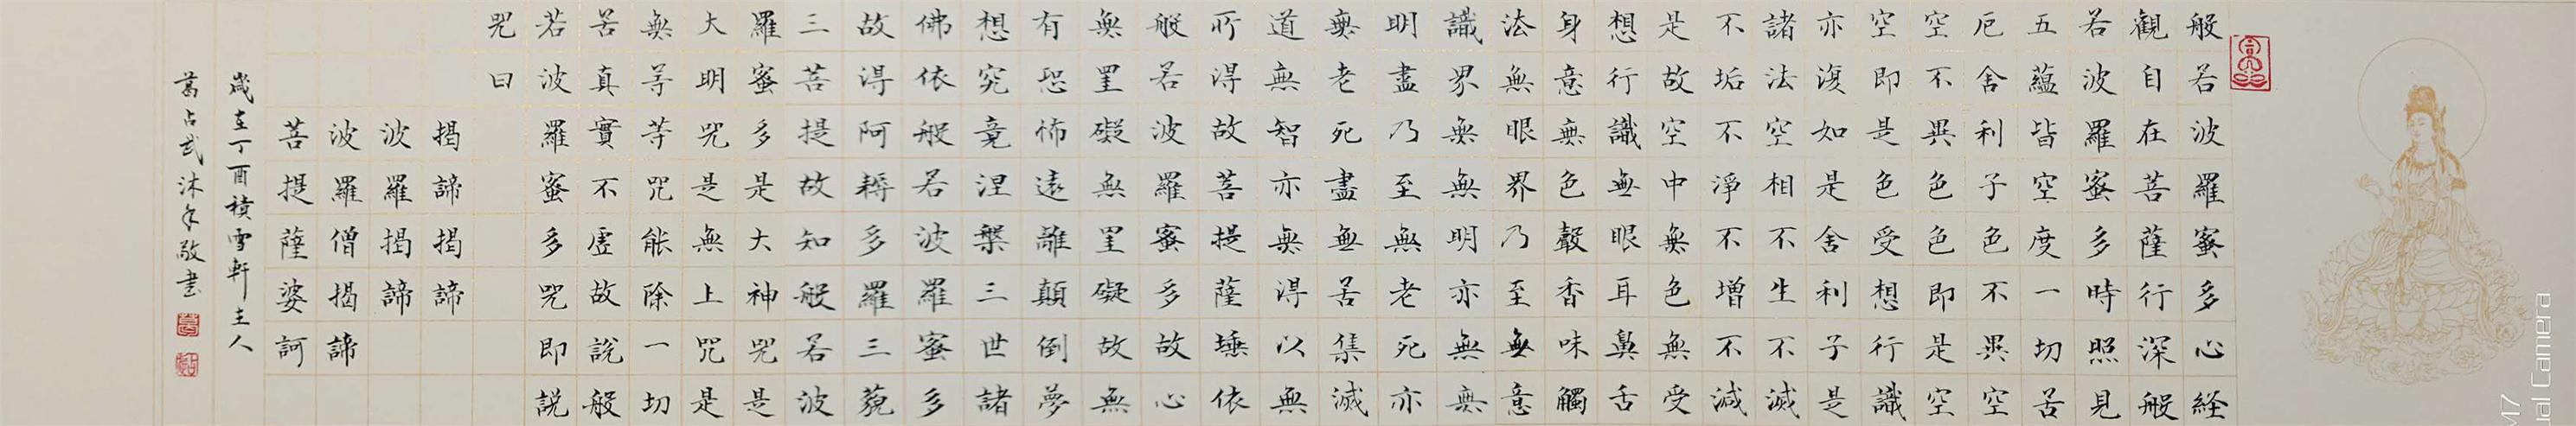 般若波羅蜜多心経
觀自在菩薩行深般
若波羅蜜多時照見
五蘊皆空度一切苦
厄舍利子色不異空
空不異色色即是空
空即是色受想行識
亦復如是舍利子是
諸法空相不生不滅
不垢不淨不增不減
是故空中無色無受
想行識無眼耳鼻舌
身意無色聲香味觸
法無眼界乃至無意
識界無無明亦無無
明盡乃至無老死亦
無老死盡無苦集滅
道無智亦無得以無
所得故菩提薩埵依
般若波羅蜜多故心
無罣礙無罣礙故無
有恐怖遠離顛倒夢
想究竟涅槃三世諸
佛依般若波羅蜜多
故得阿耨多羅三藐
三菩提故知般若波
羅蜜多是大神咒是
大明咒是無上咒是
無等等咒能除一切
苦真實不虛故說般
若波羅蜜多咒即説
咒曰
揭諦揭諦
波羅揭諦
波羅僧揭諦
菩提薩婆訶
歲在丁酉積雪軒主人
葛占武沐手敬書
M7
ual Camera